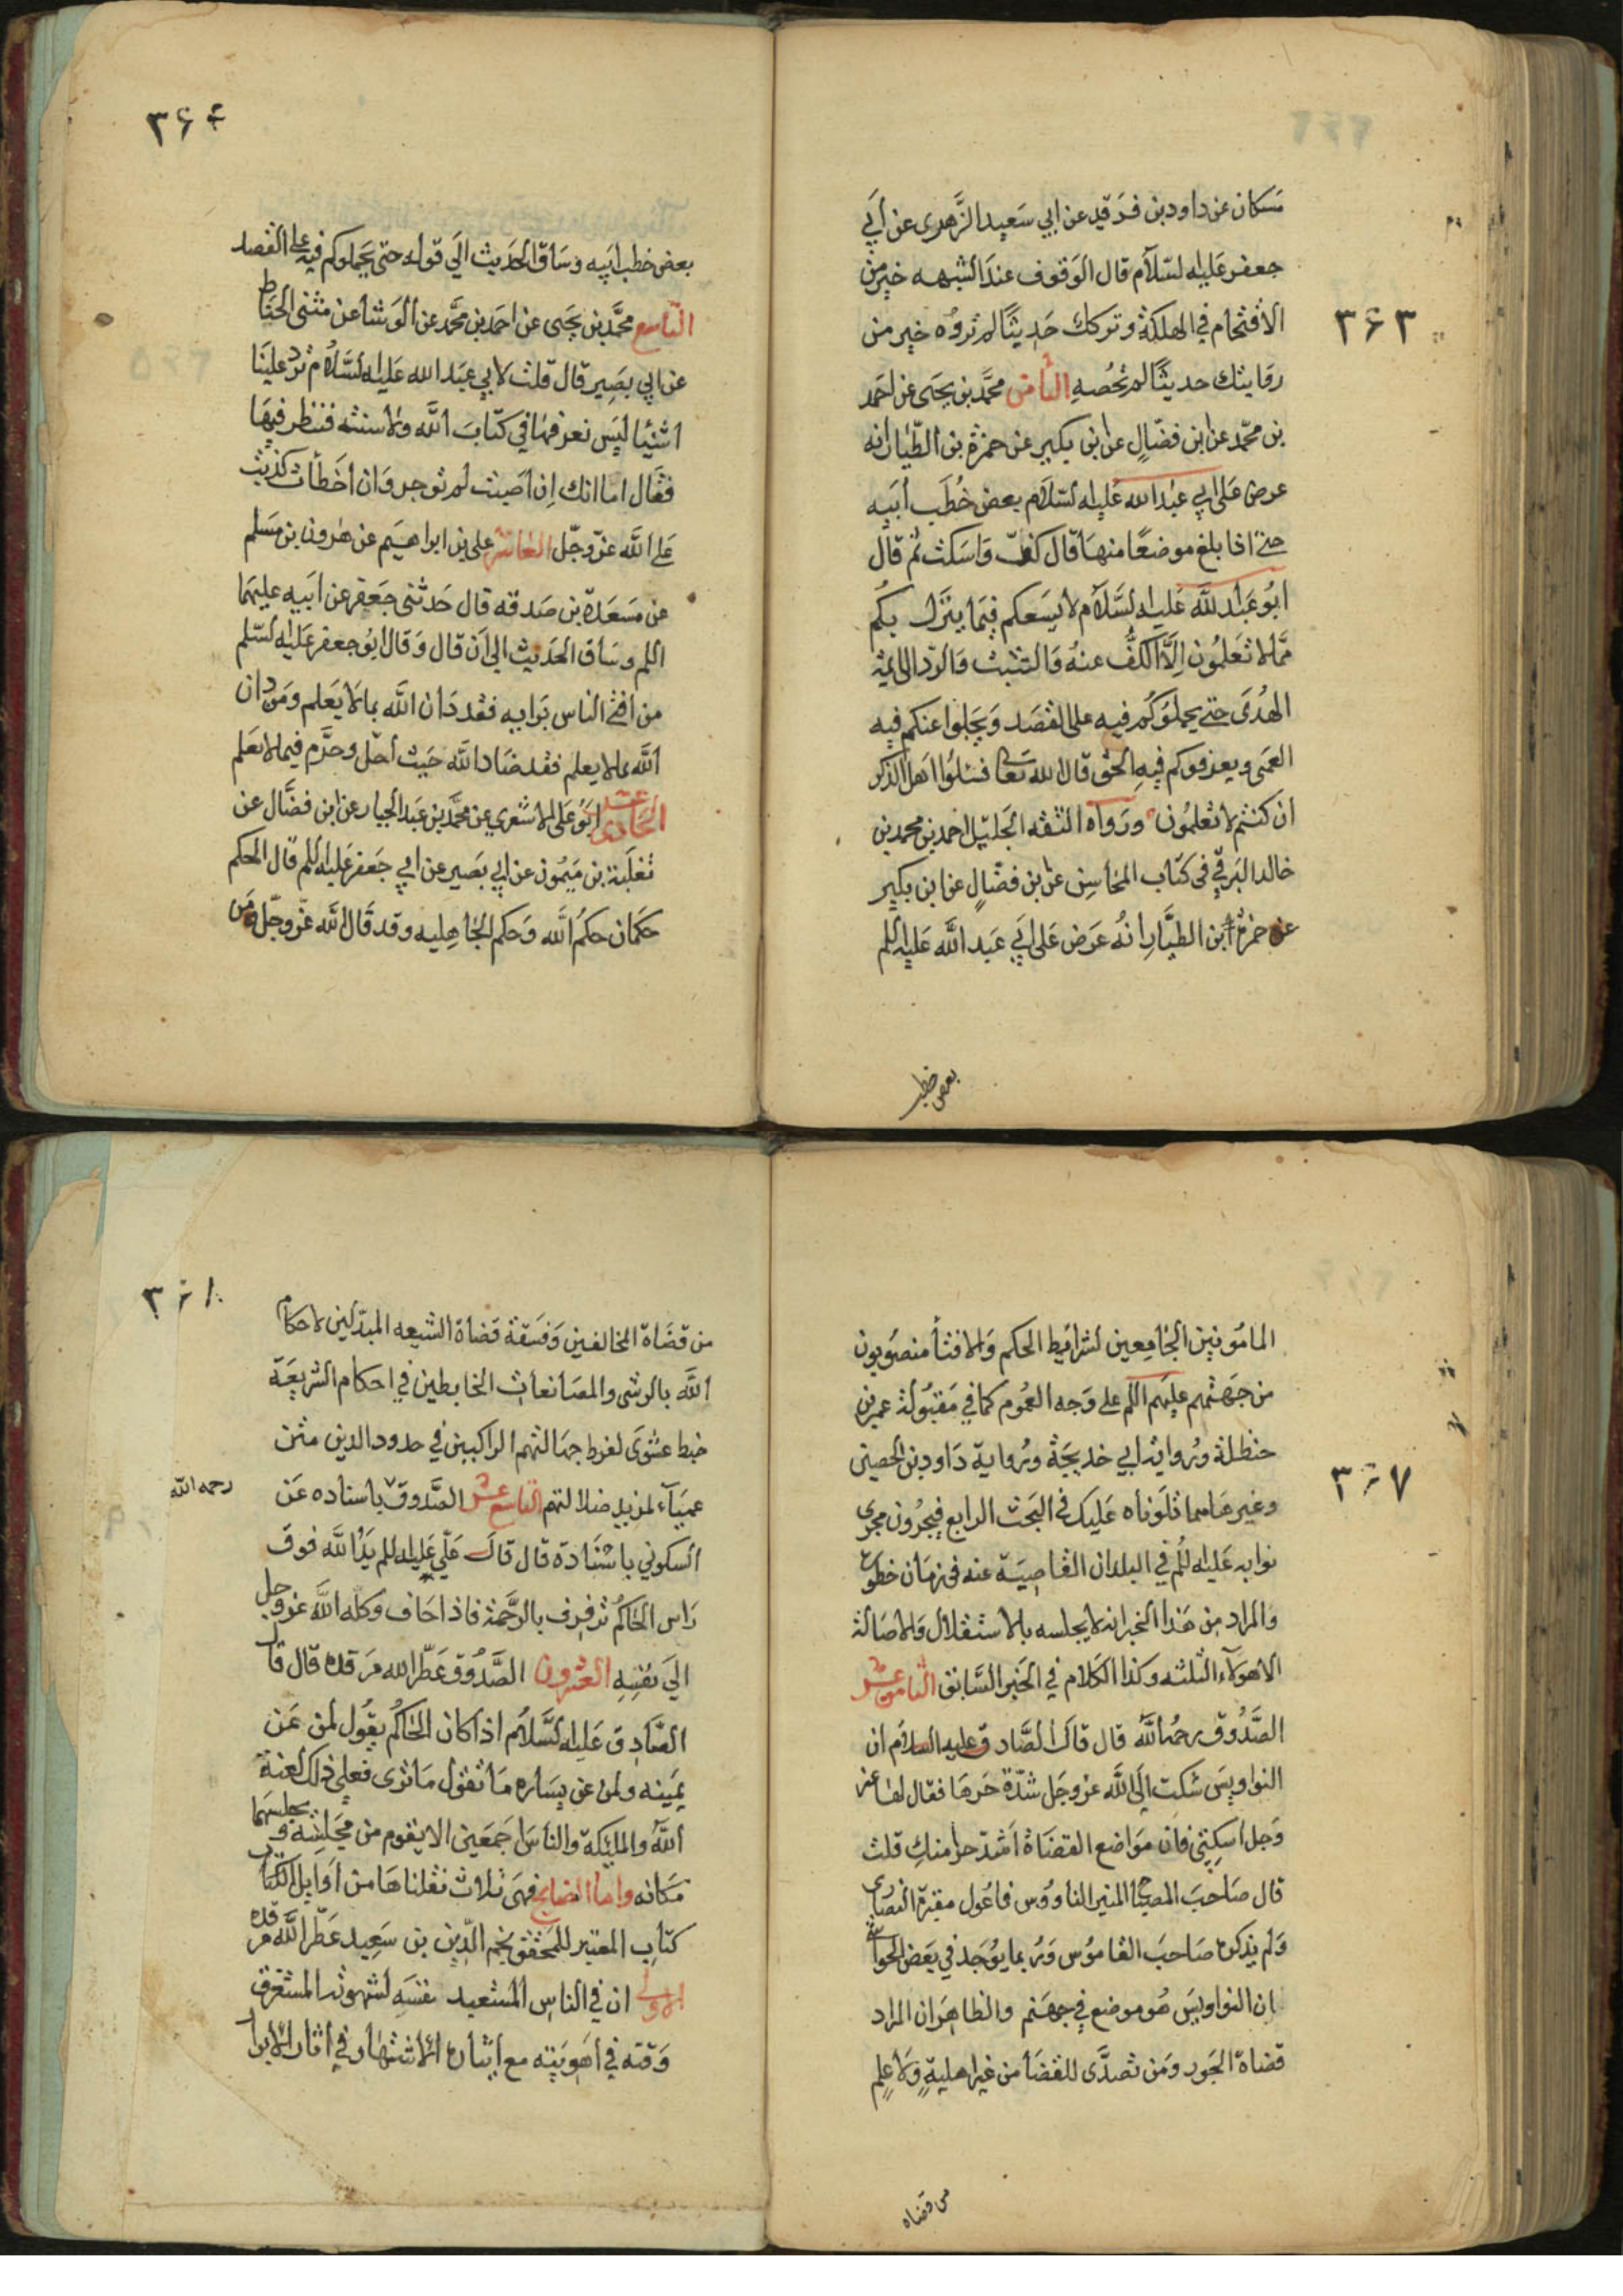 ٣۶٣
مسكان عن داود بن فرقد عن ابي سعيد الزهرى عن أبي
جعفر عليه السلام قال الوقوف عند الشبهه خير من
الاقتحام في الهلكة وتركك حديثًا لم تروه خير من
روايتك حديثًا لم تحصه الثامن محمد بن يحيى عن احمد
بن محمد عن ابن فضال عن ابن بكير عن حمزة بن الطيار انه
عرض على ابي عبد الله عليه السلام بعض خطب أبيه
حتى اذا بلغ موضعًا منها قال كفّ واسكت ثم قال
ابو عبد الله عليه السلام لا يسعكم فيما ينزل بكم
مما لا تعلمون الا الكف عنه والتثبت والرد الى ائمة
الهدى حتى يحملوكم فيه على القصد ويجلوا عنكم فيه
العمى ويعرفوكم فيه الحق قال الله تعالى فسئلوا اهل الذكر
ان كنتم لا تعلمون ورواه الثقه الجليل احمد بن محمد بن
خالد البرقي في كتاب المحاسن عن ابن فضال عن ابن بكير
عن حمزة ابن الطيار انه عرض على ابي عبد الله عليه اللم
بعض خطب
٣۶۴
بعض خطب ابيه وساق الحديث الي قوله حتى يحملوكم فيه على القصد
التاسع محمد بن يحيى عن احمد بن محمد عن الوشا عن مثنى الحناط
عن ابي بصير قال قلت لابي عبد الله عليه السلام ترد علينا
اشيئا ليس نعرفها في كتاب الله ولا سنته فننظر فيها
فقال اما انك إن أصبت لم توجر وان اخطأت كذبت
على الله عز وجل العاشر علي بن ابراهيم عن هرون بن مسلم
عن مسعدة بن صدقه قال حدثنى جعفر عن ابيه عليهما
اللم وساق الحديث الي ان قال وقال ابو جعفر عليه السلم
من افتى الناس برايه فقد دان الله بما لا يعلم ومن دان
الله بما لا يعلم فقد ضاد الله حيث أحل وحرم فيما لا يعلم
الحادى عشر ابو على الاشعري عن محمد بن عبد الجبار عن ابن فضال عن
ثعلبة بن ميمون عن ابي بصير عن ابي جعفر عليه اللم قال الحكم
حكمان حكم الله وحكم الجاهليه وقد قال الله عز وجل ومن
٣۶٧
المامونين الجامعين لشرائيط الحكم والافتأ منصوبون
من جهتهم عليهم اللم على وجه العموم كما في مقبولة عمر بن
حنظلة ورواية ابي خديجة ورواية داود بن الحصين
وغيرها مما تلوناه عليك في البحث الرابع فيجرون مجرى
نوابه عليه اللم في البلدان القاصية عنه في زمان خطوره
والمراد من هذا الخبر انه لا يجلسه بالاستقلال والاصالة
الا هولاء الثلثه وكذا الكلام في الخبر السابق الثامن عشر
الصدوق رحمه الله قال قال الصادق عليه السلام ان
النواويس شكت الى الله عز وجل شدة حرها فقال لها عز
وجل اسكتي فان مواضع القضاة أشد حرا منك قلت
قال صاحب المصباح المنير الناووس فاعول مقبرة النصارى
ولم يذكره صاحب القاموس وربما يوجد في بعض الحواشي
ان النواويس هو موضع في جهنم والظاهر ان المراد
قضاة الجور ومن تصدى للقضا من غير اهلية ولا علم
من قضاه
٣۶٨
من قضاة المخالفين وفسقة قضاة الشيعه المبدلين لاحكام
الله بالرشى والمصانعات الخابطين في احكام الشريعة
خبط عشوى لفرط جهالتهم الراكبين في حدود الدين متن
عميآء لمزيد ضلالتهم التاسع عشر الصدوق باسناده عن
رحمه الله
السكوني باسناده قال قال علي عليه اللم يد الله فوق
راس الحاكم ترفرف بالرحمة فاذا حاف وكله الله عز وجل
الي نفسه العشرون الصدوق عطر الله مرقده قال قال
الصادق عليه السلام اذا كان الحاكم يقول لمن عن
يمينه ولمن عن يساره ما تقول ما ترى فعلى ذلك لعنة
الله والمليكة والناس اجمعين الا يقوم من مجلسه ويجلسهما
مكانه واما النصايح فهى ثلاث نقلناها من أوايل الكتاب
كتاب المعتبر للمحقق نجم الدين بن سعيد عطر الله مرقده
الاولى ان في الناس المستعبد نفسه لشهوته المستغرق
وقته في اهويته مع ايثاره الاشتهار في اثار الابرار